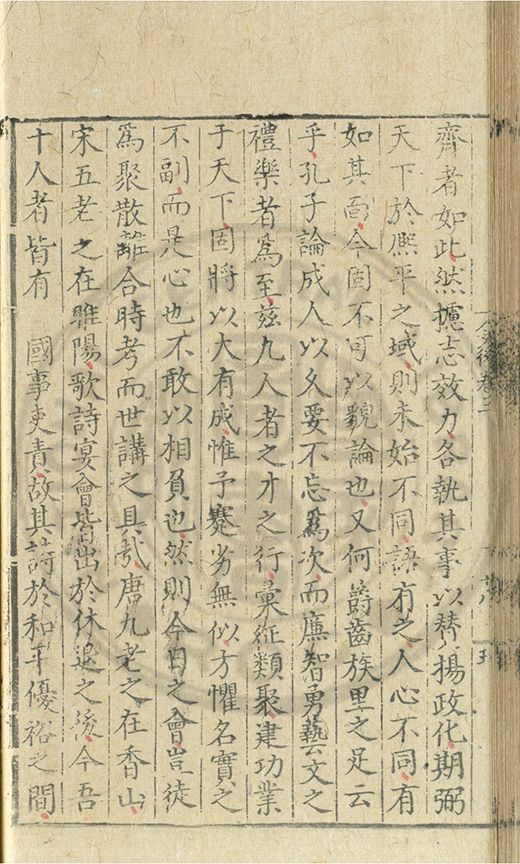 齊者如此然攄志效力各執其事以賛揚政化期弼
天下於熈平之域則未始不同語有之人心不同有
如其面今固不可以貌論也又何爵齒族里之足云
乎孔子論成人以久要不忘為次而廉智勇藝文之
禮樂者為至兹九人者之才之行彙征類聚建功業
于天下固將以大有成惟予蹇劣無似方懼名實之
不副而是心也不敢以相負也然則今日之會豈徒
為聚散離合時考而世講之具㢤唐九老之在香山
宋五老之在睢陽歌詩宴會皆出於休退之後今吾
十人者皆有 國事吏責故其詩於和平優裕之間